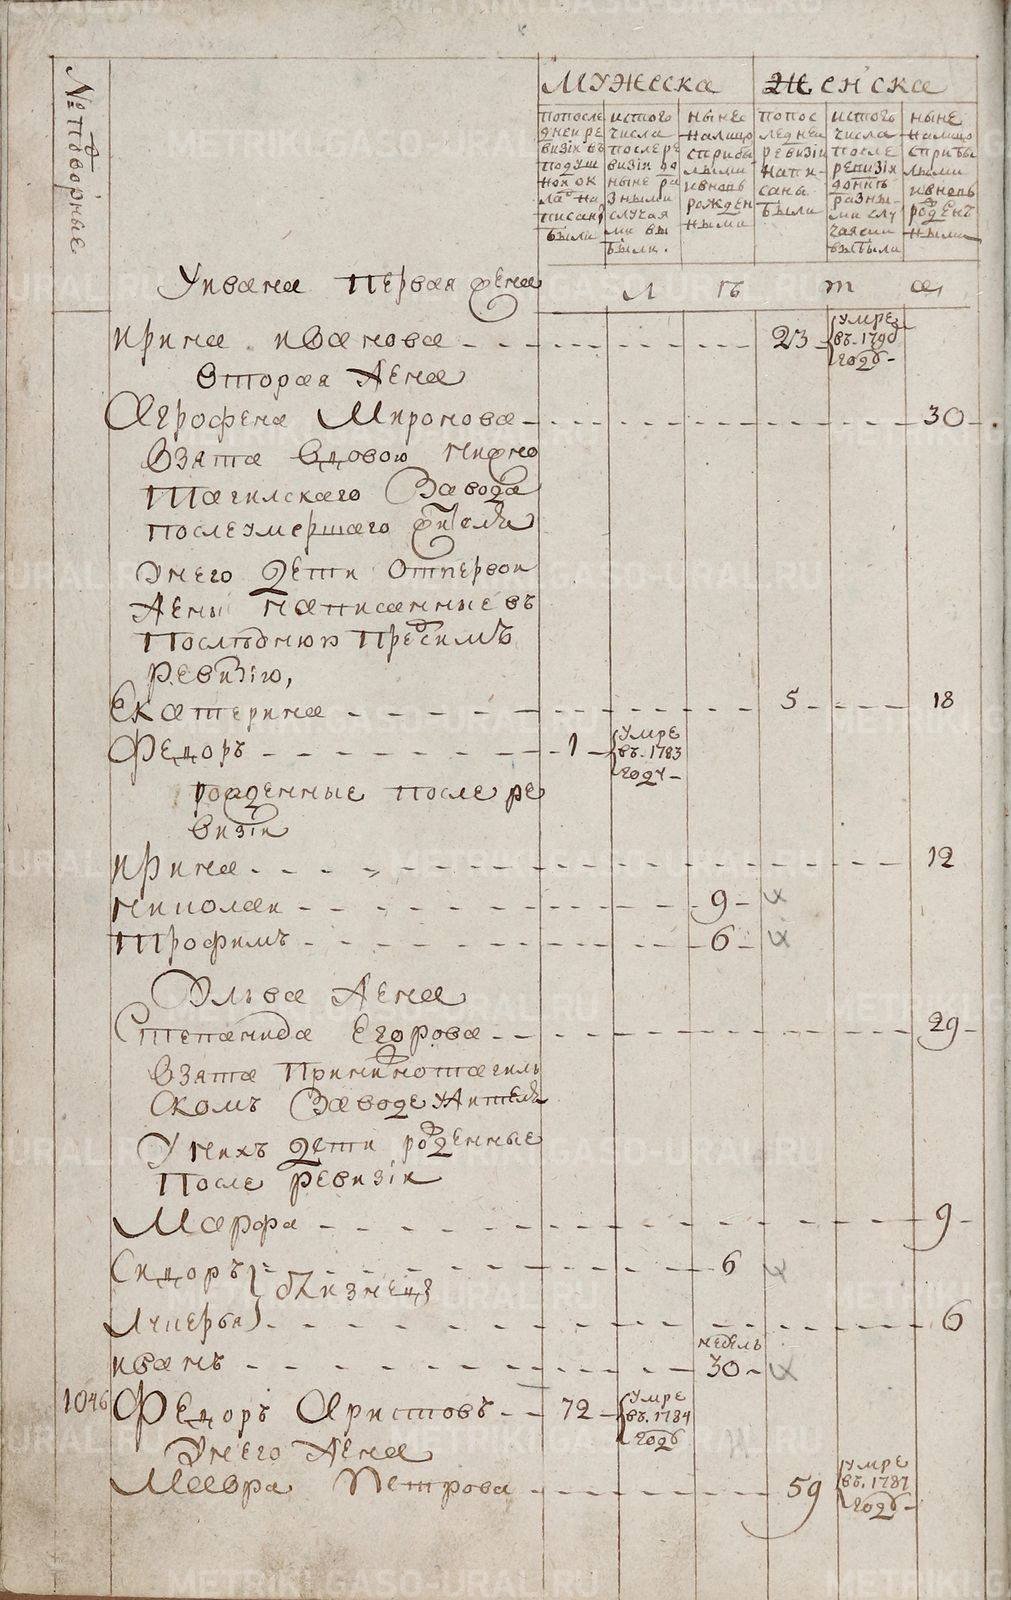 № подворные
Мужеска
Женска
попосле
дней ре
визiи въ
подуш
ной ок
ладъ на
писаны
были
истого
числа
послере
визiи ра
зными
случая
ми вы
были.
ныне
налицо
сприбы
лыми
ивновь
рожден
ными
попос
леднеи
ревизiи
напи-
саны
были
истого
числа
после
ревизiи
разны-
ми слу
чаями
выбыли
ныне
налицо
сприбы
лыми
ивновь
рожден
ными
Уивана первая жена
л ѣ т а
ирина иванова 23 умре
въ 1790
годе
вторая жена
Агрофена Миронова 30
взята вдовою нижно
тагилскаго завода
послеумершаго жителя
Унего дети отпервои
жены написанныевъ
последнюю предсимъ
ревизiю,
Екатерина 5 18
Федоръ 1 умре
въ 1783
году
рожденные после ре
визiи
ирина 12
николаи 9
трофимъ 6
Улва жена
Степанида Егорова 29
взята принижнотагиль
скомъ заводе ужителя
У нихъ дети рожденные
после ревизiи
Марфа 9
Сидоръ 6
близнецы
Лукерья 6
иванъ недель
30
1046 Федоръ Аристовъ 72 умре
въ 1784
годе
Унего жена
Мавра Петрова 59 умре
въ 1787
годе
METRIKI.GASO-URAL.RU